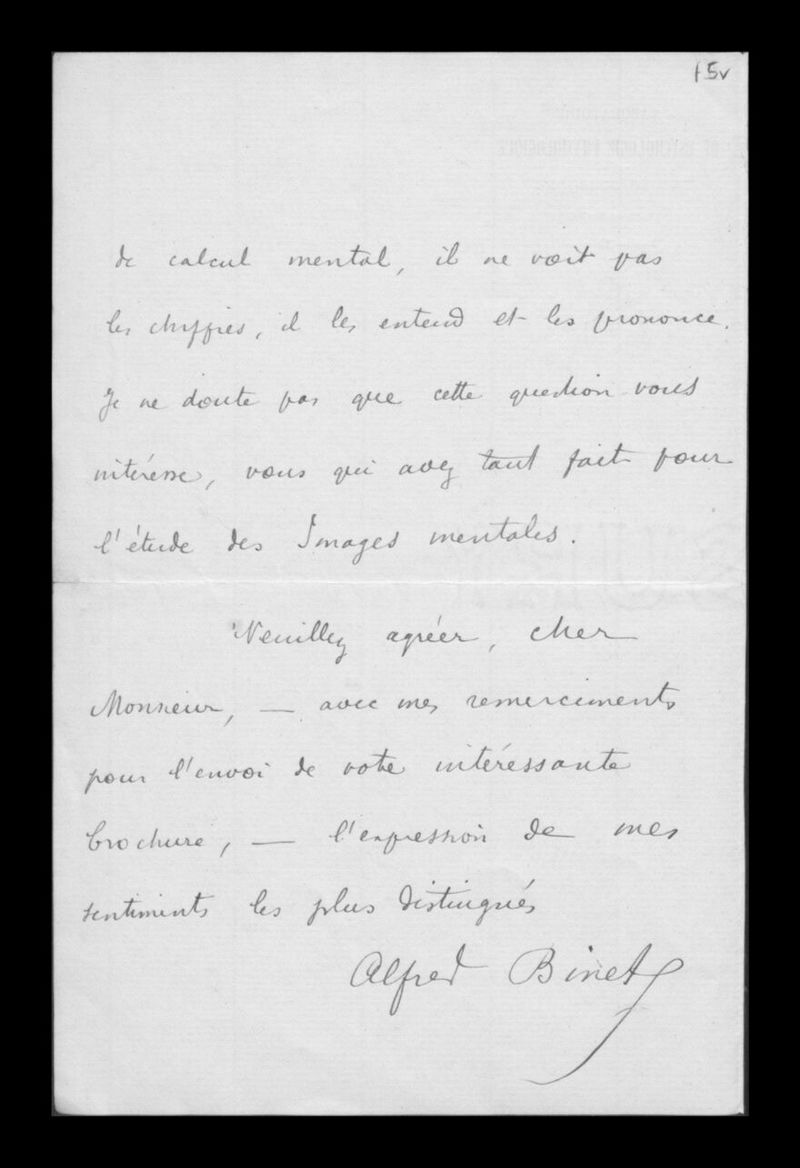 15v
de calcul mental, il ne voit pas
les chiffres, il les entend et les prononce.
Je ne doute pas que cette question vous
intéresse, vous qui avez tant fait pour
l'étude des Images mentales.
Veuillez agréer, cher
Monsieur, — avec mes remerciments
pour l'envoi de votre intéressante
brochure, — l'expression de mes
sentiments les plus distingués
Alfred Binet